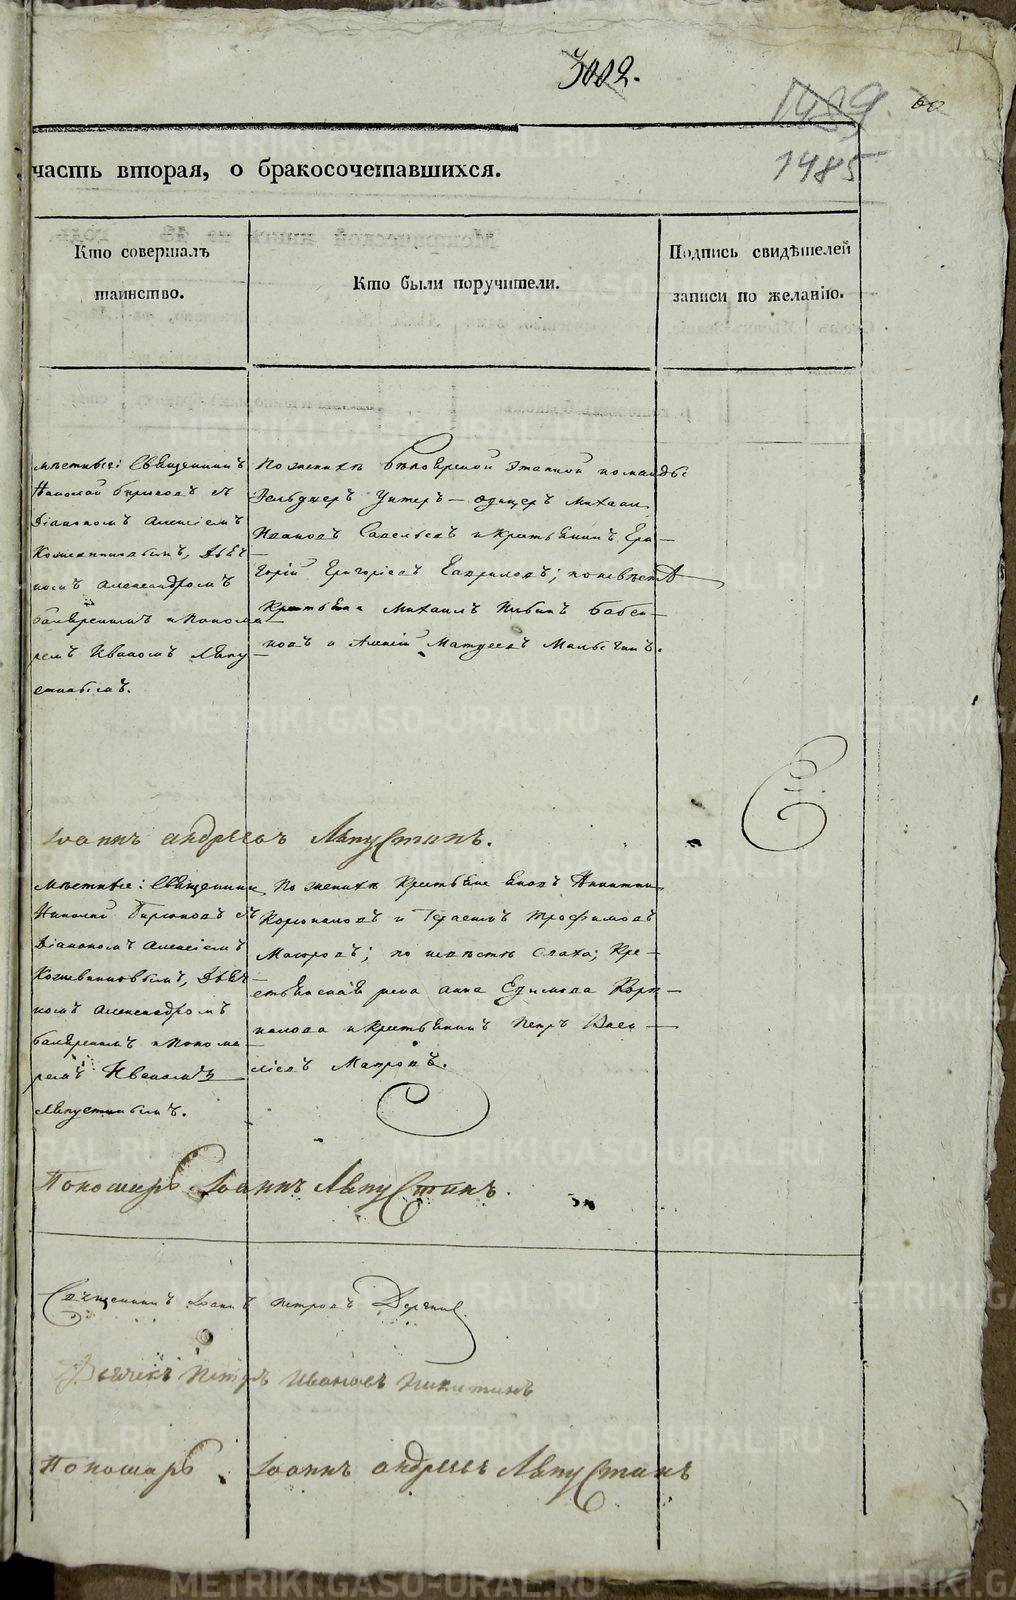 3002.
1419
60
1485
часть вторая, о бракосочетавшихся.
Кто совершалъ
таинство.
Кто были поручители.
Подпись свидѣтелей
записи по желанію.
мѣстные: Священникъ
Николай Бирюковъ съ
Діакономъ Алексіемъ
Кожевниковымъ, Дьяч-
комъ Александромъ
и Понома-
ремъ Иваномъ Ляпу-
стинымъ.
По женихѣ этапной команды
Унтеръ-офицеръ Михаил
Ивановъ Савельевъ и Крестьянинъ Гри-
горій Григоріевъ Гавриловъ; по невѣстѣ
Крестьяна Михаилъ
и Алексій Матвеевъ
Іоаннъ Андреевъ Ляпустинъ.
Мѣстные: Священникъ
Николай Бирюковъ съ
Діакономъ Алексіемъ
Кожевниковымъ, Дьяч-
комъ Александромъ
и Понома-
ремъ Иваномъ
Ляпустинымъ.
По женихѣ Крестьяне Никитин
и Герасимъ Трофимовъ
; по невѣстѣ Кре-
стьянская Анна Ефимова Корю-
калова и Крестьянинъ Петръ Васи-
ліевъ
Пономарь Іоаннъ Ляпустинъ.
Священникъ Іоаннъ Петровъ
Дьячекъ Петръ Ивановъ Никитинъ
Пономарь Іоаннъ Андреевъ Ляпустинъ
METRIKI.GASO-URAL.RU